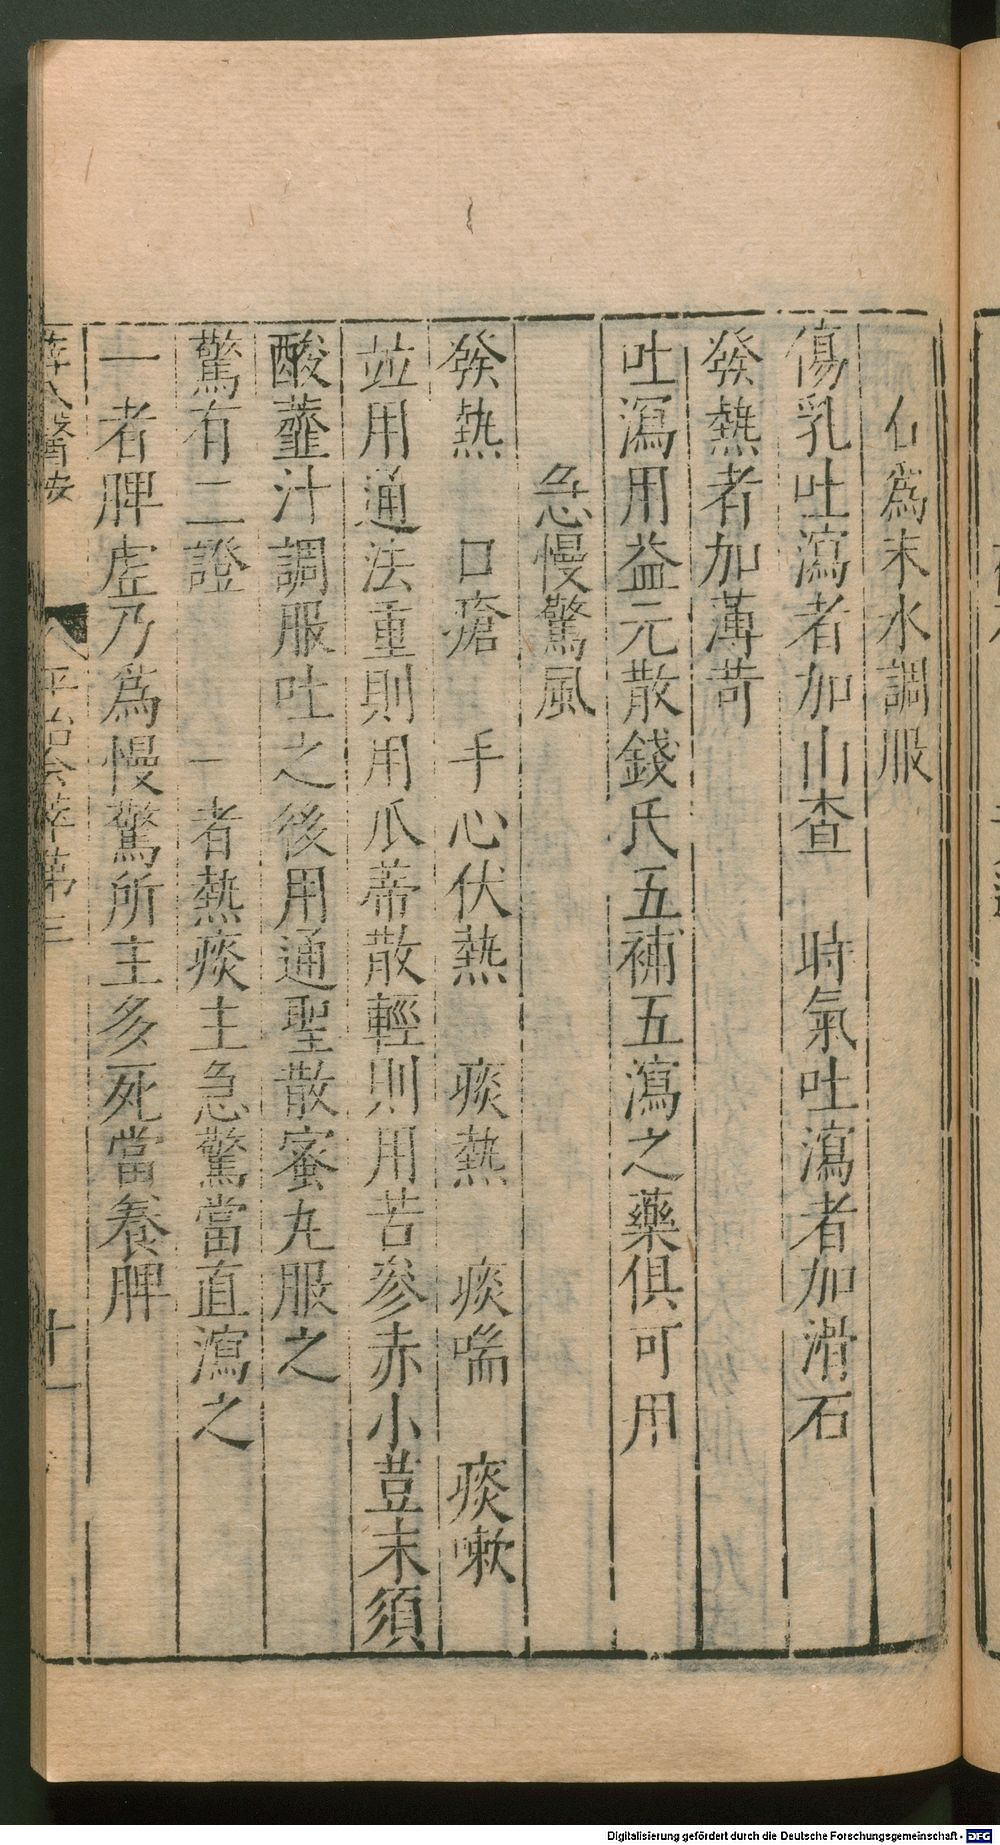 右為末水調服
傷乳吐瀉者加山查　時氣吐瀉者加滑石
發熱者加薄苛
吐瀉用益元散錢氏五補五瀉之藥俱可用
急慢驚風
發熱　口瘡　手心伏熱　痰熱　痰喘　痰嗽
並用通法重則用瓜蒂散輕則用苦參赤小荳末須
酸虀汁調服吐之後用通聖散蜜丸服之
驚有二證　一者熱痰主急驚當直瀉之
一者脾虛乃為慢驚所主多死當養脾
薛氏醫按　平治會萃第三　十一
Digitalisierung gefördert durch die Deutsche Forschungsgemeinschaft - DFG